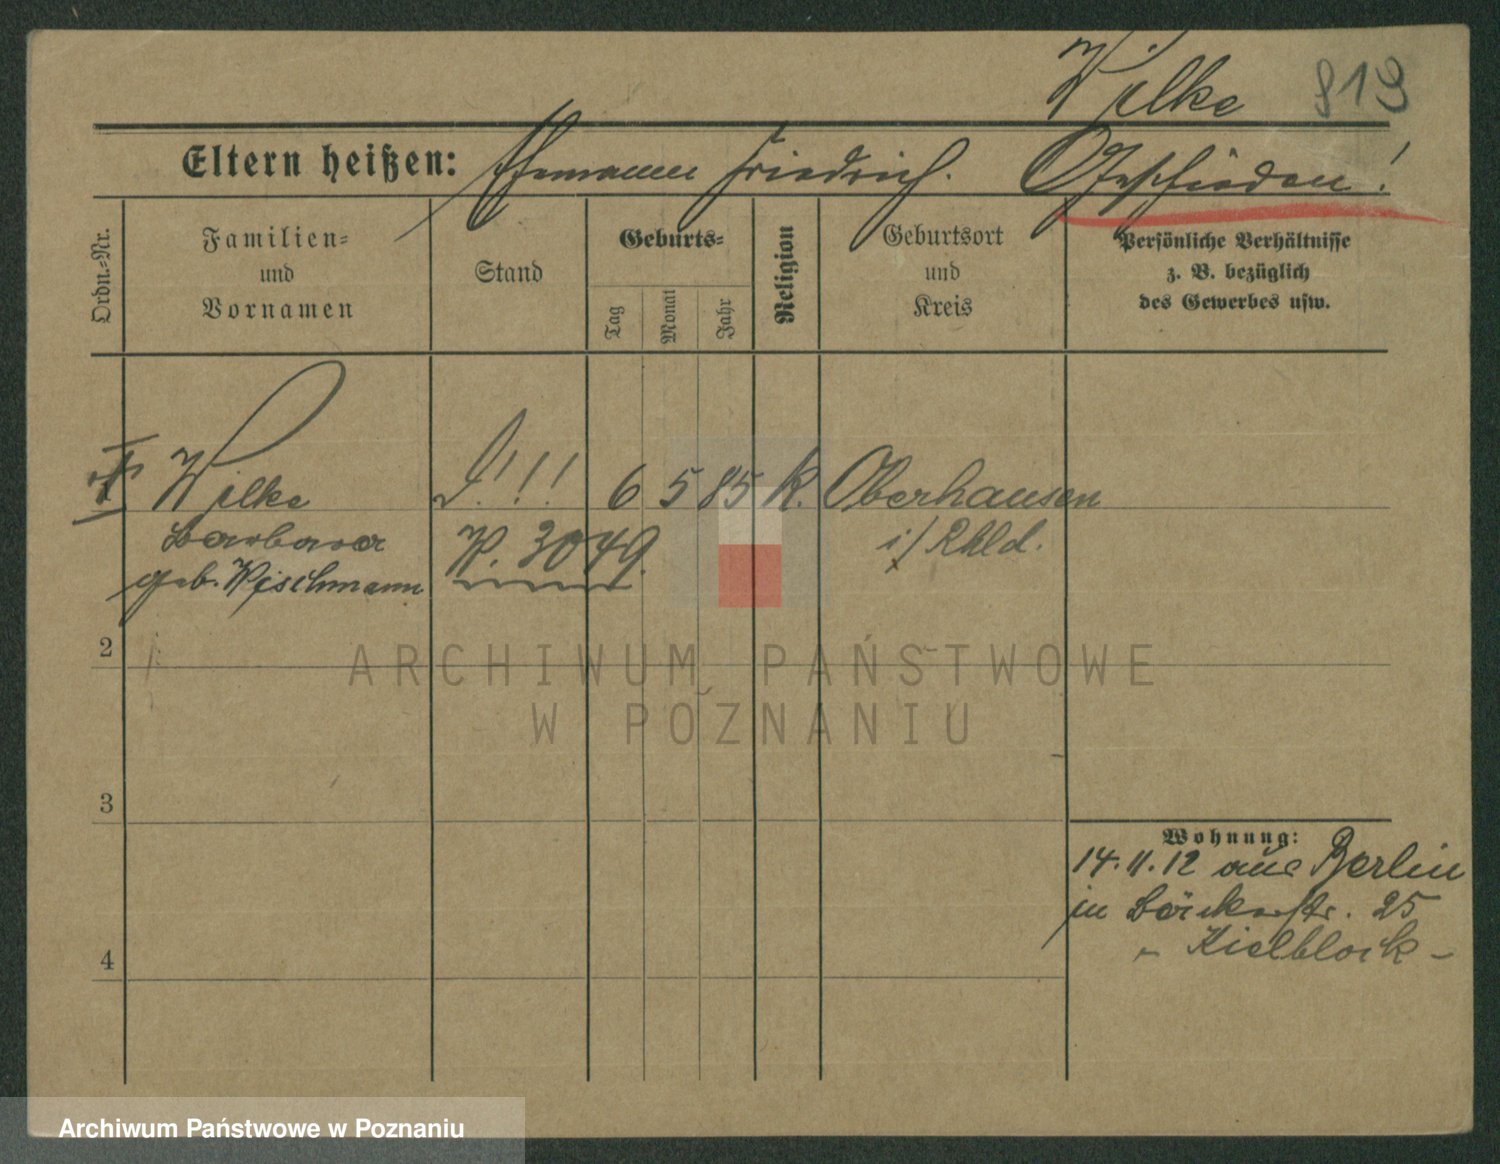 Wilke 819
Eltern heißen: Ehemann Friedrich. Geschieden!
Ordn.-Nr.
Familien-
und
Vornamen
Stand
Geburts-
Tag
Monat
Jahr
Religion
Geburtsort
und
Kreis
Persönliche Verhältnisse
z. B. bezüglich
des Gewerbes usw.
Wilke
Barbara
geb. Wischmann
D!!!
W. 3049.
6 5 85 k. Oberhausen
i/Rhld.
2
3
4
Wohnung:
14.11.12 aus Berlin
in Bäckerstr. 25
- Kielblock -
ARCHIWUM PAŃSTWOWE
W POZNANIU
Archiwum Państwowe w Poznaniu